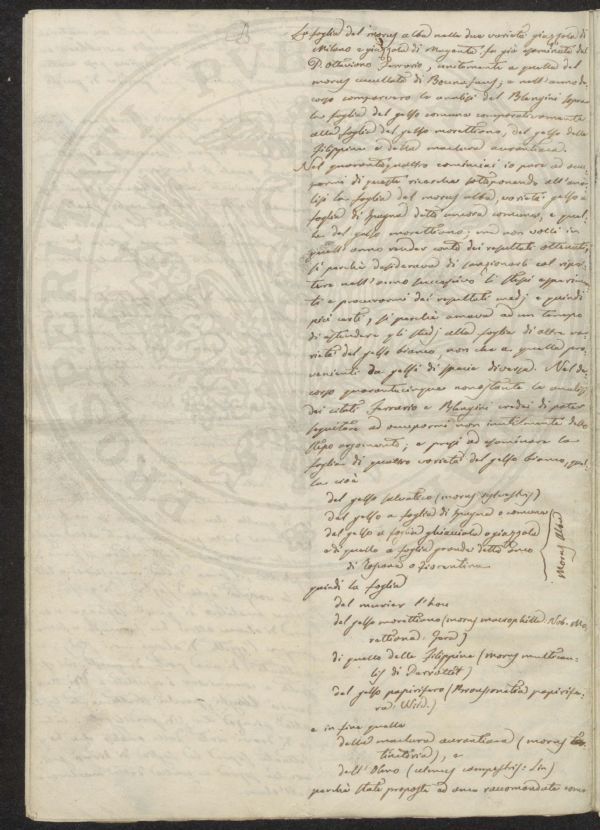 La foglia del morus alba nelle due varietà giazzola di
Milano e giazzola di Magenta fu già esaminata dal
D. Ottaviano Ferrario, unitamente a quella del
morus cucullata di Bonnafous; e nell'anno de-
corso comparvero le analisi del Blengini sopra
la foglia del gelso comune comparativamente
alla foglia del gelso morettiano, del gelso delle
Filippine e della maclura aurantiaca.
Nel quarantaquattro cominciai io pure ad occu-
parmi di queste ricerche sottoponendo all'ana-
lisi la foglia del morus alba, varietà gelso a
foglia di Spagna detta ancora comune, e quel-
la del gelso morettiano; ma non volli in
quell'anno render conto dei resultati ottenuti,
sì perchè desiderava di
nell'anno successivo li stessi esperimen-
ti e procurarmi dei resultati medj e quindi
più certi, sì perchè amava ad un tempo
di estendere gli studj alla foglia di altre va-
rietà del gelso bianco, non che a quelle pro-
venienti da gelsi di specie diversa. Nel de-
corso quarantacinque nonostante le analisi
dei citati Ferrario e Blengini credei di poter
seguitare ad occuparmi non inutilmente dello
stesso argomento; e presi ad esaminare la
foglia di quattro varietà del gelso bianco, quel-
la cioè
del gelso salvatico (morus sylvestris)
del gelso a foglia di Spagna o comune
del gelso a foglia ghiacciola o giazzola
e di quello a foglia grande detto anco
di Toscana o fiorentina
Morus Alba
quindi la foglia
del murier l'hou
del gelso morettiano (morus macrophilla. Nob. Mo-
rettiana. Jard)
di quello delle Filippine (morus multicau-
lis di Perrottet)
del gelso papirifero (Broussonetia papirife-
ra, Wild.)
e in fine quella
della maclura aurantiaca (morus
tinctoria), e
dell'Olmo (ulmus campestris: Lin)
perchè state proposte ed anco raccomandate come